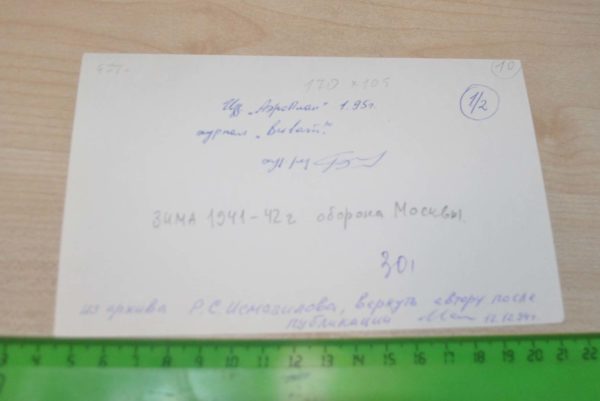 10
170 x 105
1/2
Изд. „Аэроплан" 1.95г.
журнал „Виват!"
худ. ред.
ЗИМА 1941-42г оборона Москвы.
30
из архива Р.С. Исмагилова, вернуть автору после
публикации 12.12.94г.
3 4 5 6 7 8 9 10 11 12 13 14 15 16 17 18 19 20 21 22